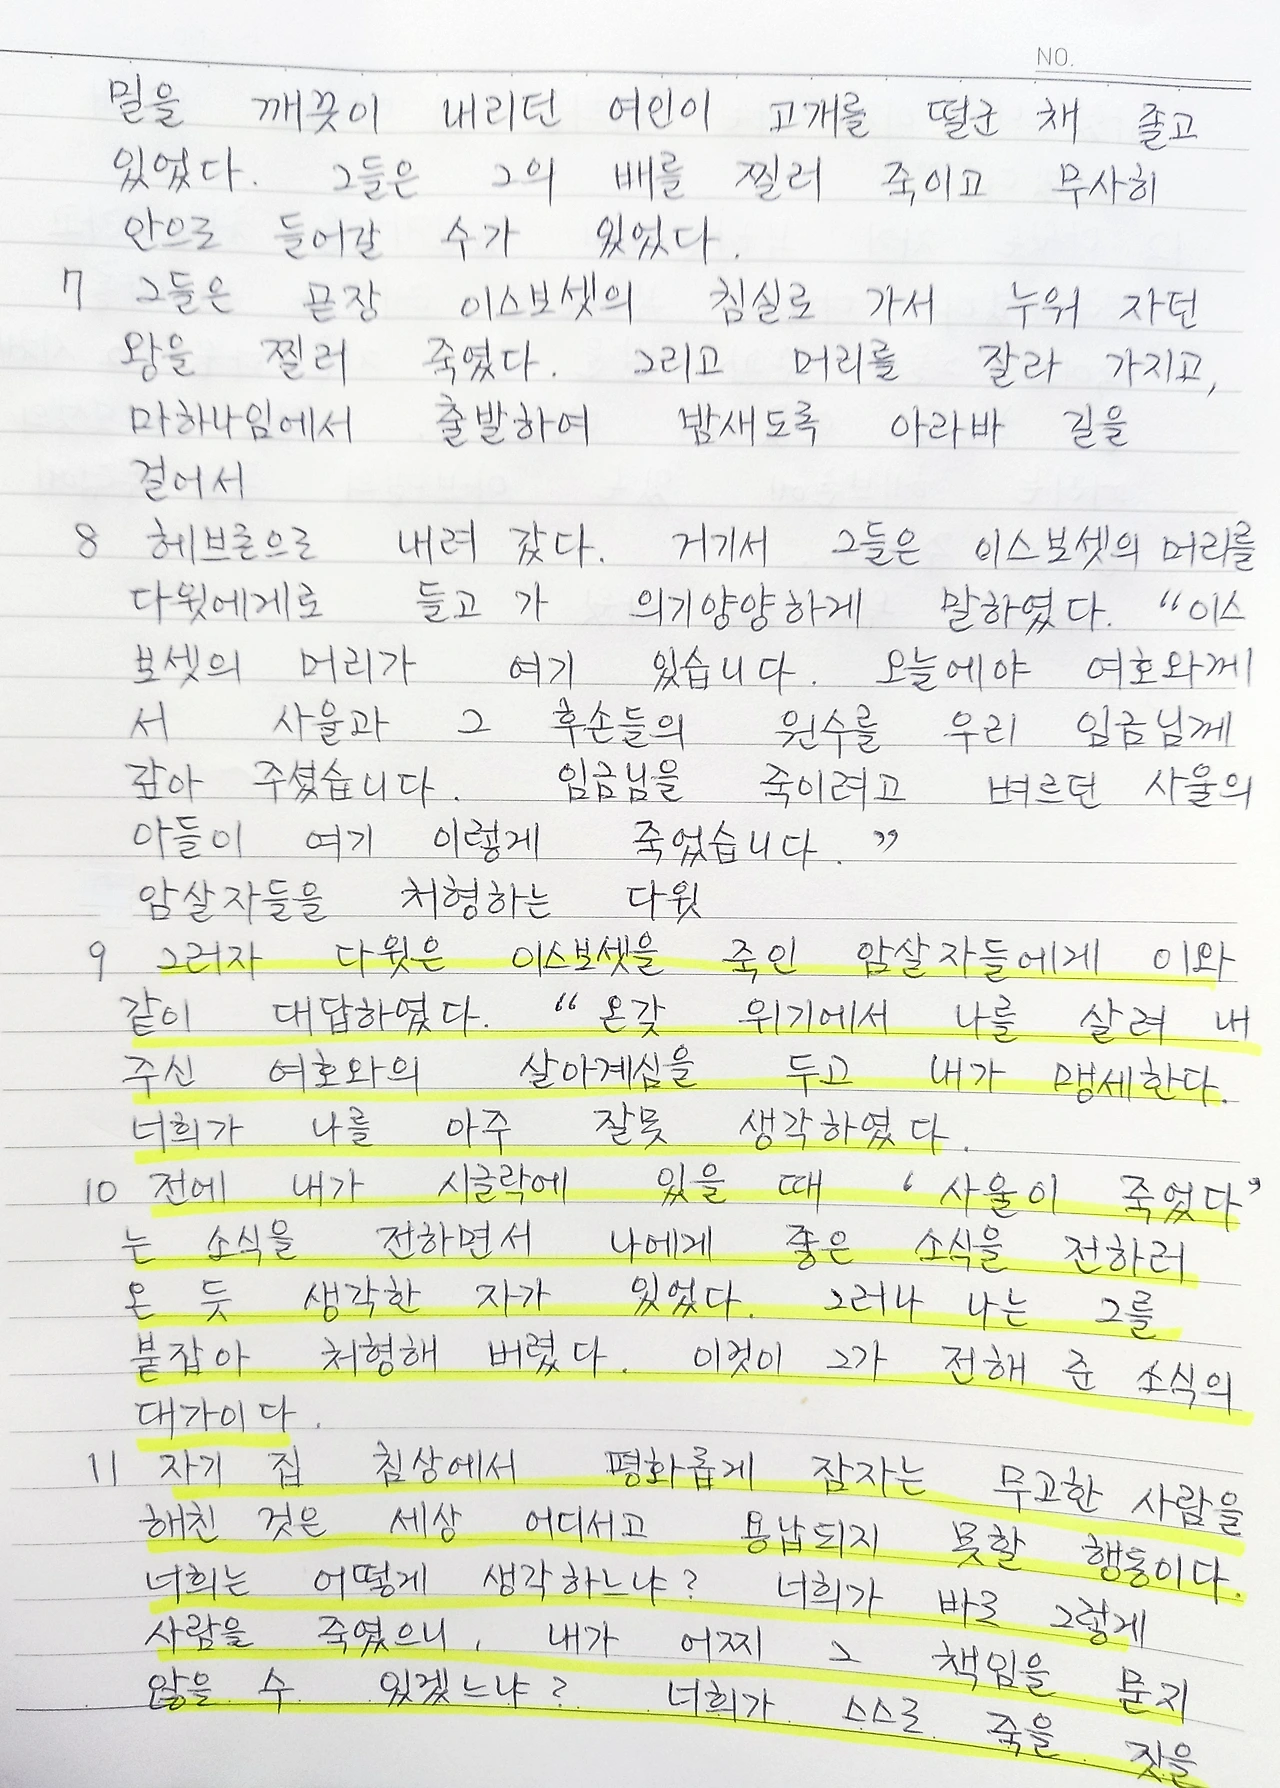 NO.
밀을 깨끗이 내리던 여인이 고개를 떨군 채 졸고
있었다. 그들은 그의 배를 찔러 죽이고 무사히
안으로 들어갈 수가 있었다.
7 그들은 곧장 이스보셋의 침실로 가서 누워 자던
왕을 찔러 죽였다. 그리고 머리를 잘라 가지고,
마하나임에서 출발하여 밤새도록 아라바 길을
걸어서
8 헤브론으로 내려 갔다. 거기서 그들은 이스보셋의 머리를
다윗에게로 들고 가 의기양양하게 말하였다. "이스
보셋의 머리가 여기 있습니다. 오늘에야 여호와께
서 사울과 그 후손들의 원수를 우리 임금님께
갚아 주셨습니다. 임금님을 죽이려고 벼르던 사울의
아들이 여기 이렇게 죽었습니다."
암살자들을 처형하는 다윗
9 그러자 다윗은 이스보셋을 죽인 암살자들에게 이와
같이 대답하였다. "온갖 위기에서 나를 살려 내
주신 여호와의 살아계심을 두고 내가 맹세한다.
너희가 나를 아주 잘못 생각하였다.
10 전에 내가 시글락에 있을 때 '사울이 죽었다'
는 소식을 전하면서 나에게 좋은 소식을 전하러
온 듯 생각한 자가 있었다. 그러나 나는 그를
붙잡아 처형해 버렸다. 이것이 그가 전해 준 소식의
대가이다.
11 자기 집 침상에서 평화롭게 잠자는 무고한 사람을
해친 것은 세상 어디서고 용납되지 못할 행동이다.
너희는 어떻게 생각하느냐? 너희가 바로 그렇게
사람을 죽였으니, 내가 어찌 그 책임을 묻지
않을 수 있겠느냐? 너희가 스스로 죽을 짓을